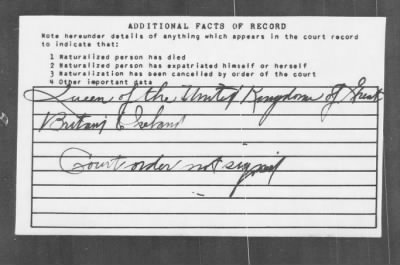 ADDITIONAL FACTS OF RECORD
Note hereunder details of anything which appears in the court record
to indicate that:
1 Naturalized person has died
2 Naturalized person has expatriated himself or herself
3 Naturalization has been cancelled by order of the court
4 Other important data
Queen of the United Kingdom of Great
Britain Ireland
Court order not signed